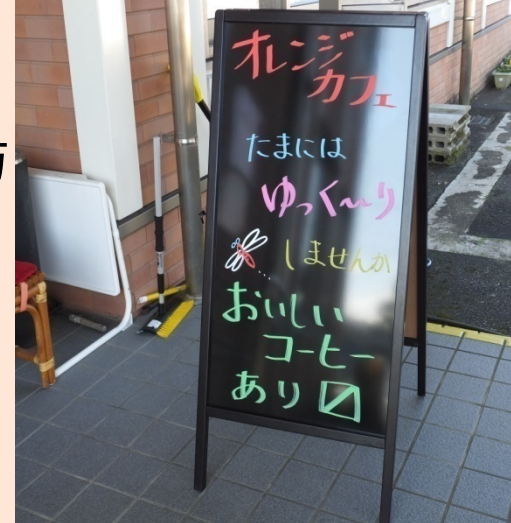 オレンジ
カフェ
たまには
ゆっく〜り
しませんか
おいしい
コーヒー
あり〼